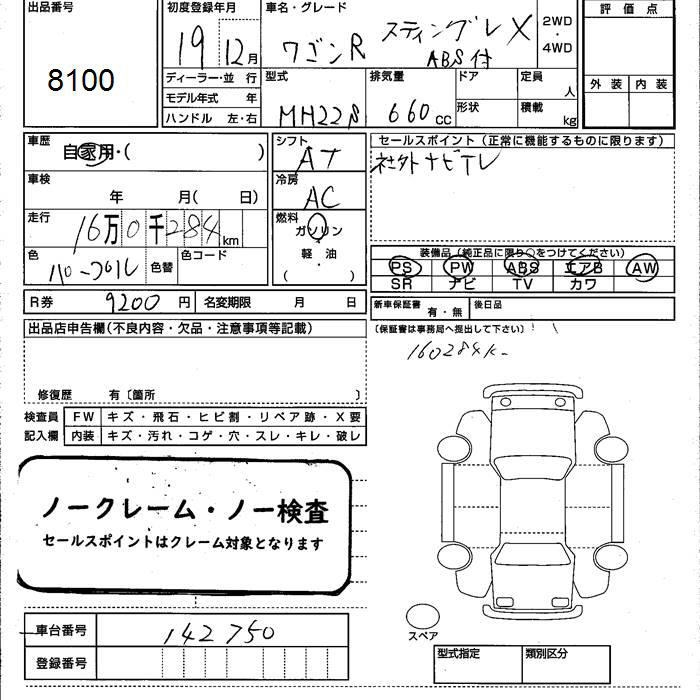 出品番号
8100
初度登録年月
19 12月
車名・グレード
ワゴンR スティングレ X
ABS付
2WD
・
4WD
評価点
外装 内装
ディーラー・並行
モデル年式 年
ハンドル 左・右
型式
MH22S
排気量
660 cc
ドア
形状
定員
人
積載
kg
車歴
自家用・( )
車検
年 月( 日)
走行
16万0千284km
色
パープル
色替
色コード
シフト
AT
冷房
AC
燃料
ガソリン
軽・油
( )
セールスポイント(正常に機能するものに限ります)
社外ナビTV
装備品(純正品に限り○をつけてください)
PS PW ABS エアB AW
SR ナビ TV カワ
R券 9200円 名変期限 月 日
新車保証書 有・無 後日品
(保証書は事務局へ提出して下さい)
160284K-
出品店申告欄(不良内容・欠品・注意事項等記載)
修復歴 有〔箇所 〕
検査員 FW キズ・飛石・ヒビ割・リペア跡・X要
記入欄 内装 キズ・汚れ・コゲ・穴・スレ・キレ・破レ
ノークレーム・ノー検査
セールスポイントはクレーム対象となります
車台番号 142750
登録番号
スペア
型式指定 類別区分